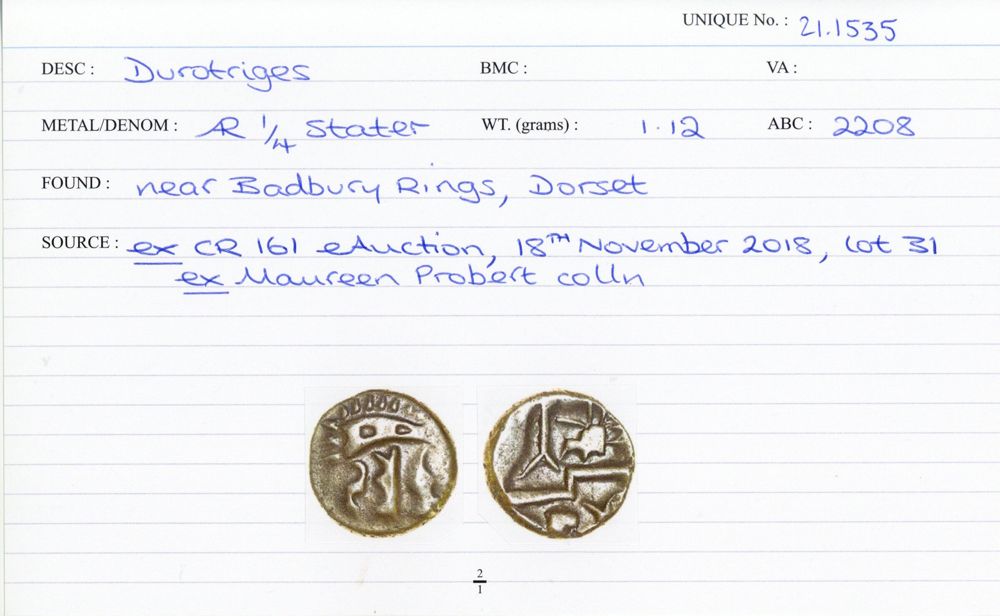 UNIQUE No. : 21.1535
DESC : Durotriges BMC : VA :
METAL/DENOM : AR 1/4 Stater WT. (grams) : 1.12 ABC : 2208
FOUND : near Badbury Rings, Dorset
SOURCE : ex CR 161 eAuction, 18TH November 2018, lot 31
ex Maureen Probert colln
2/1